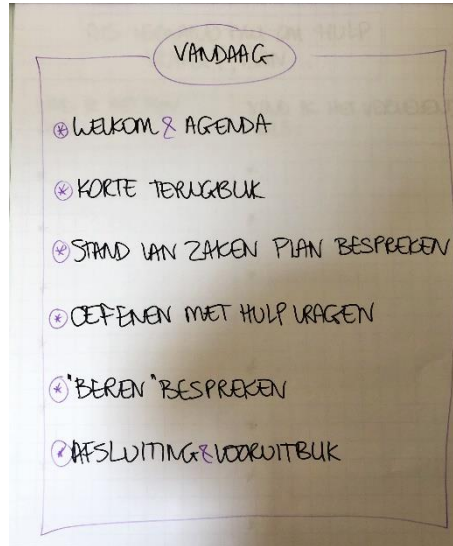 VANDAAG
* WELKOM & AGENDA
* KORTE TERUGBLIK
* STAND VAN ZAKEN PLAN BESPREKEN
* OEFENEN MET HULPVRAGEN
* "BEREN" BESPREKEN
* AFSLUITING & VOORUITBLIK